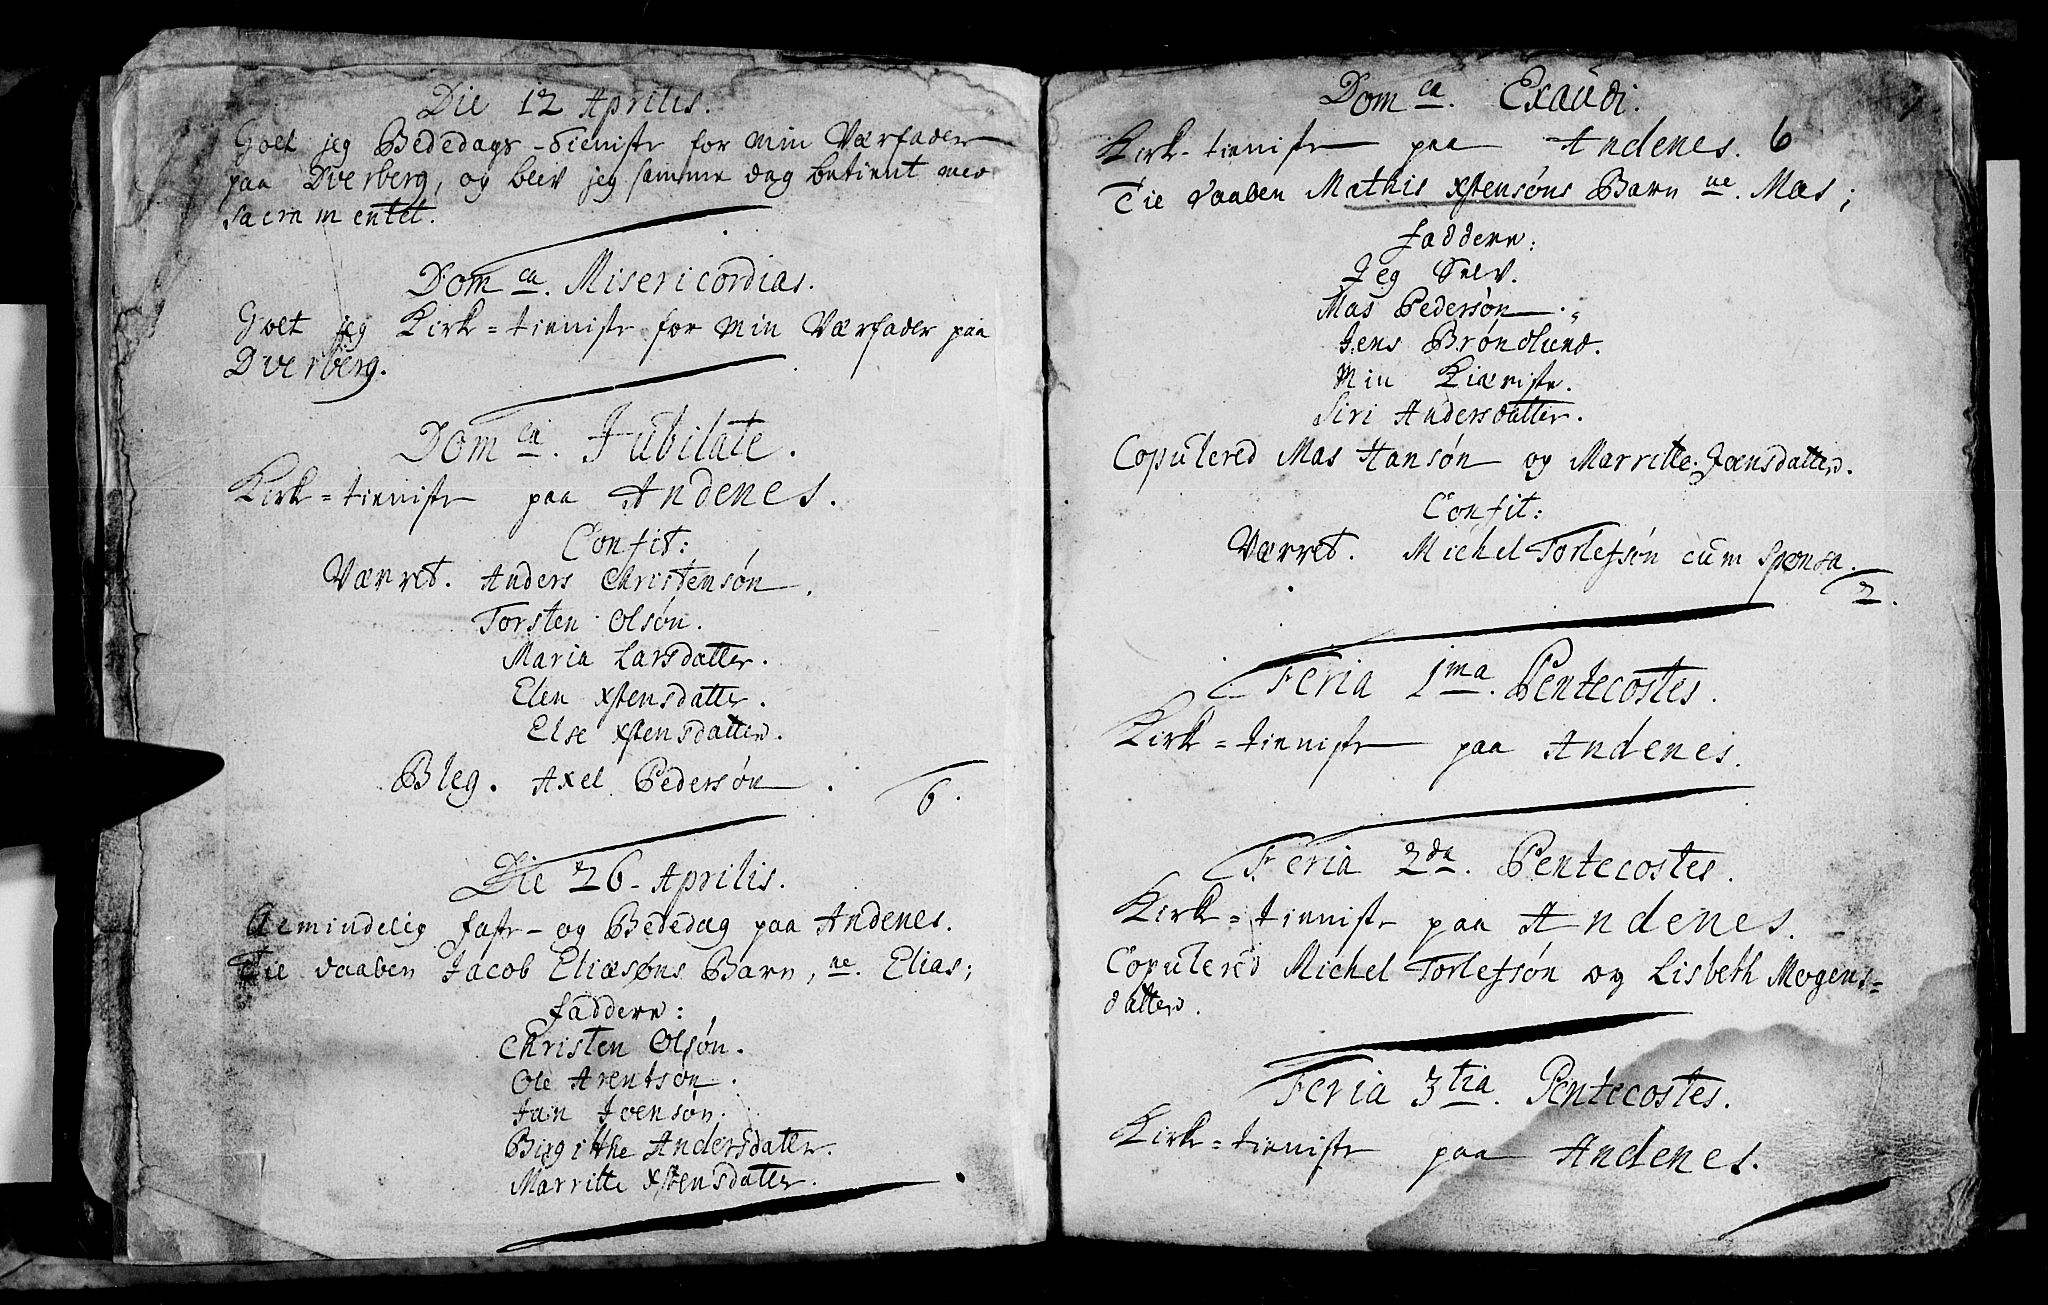 Die 12 Aprilis.
Holt jeg Bededags-tieniste for min Værfader
paa Dverberg, og blev jeg samme dag betient med
sacramentet.
Dom ca. Misericordias.
Holt jeg Kirk=tieniste for min Værfader paa
Dverberg.
Dom ca. Jubilate.
Kirk=tieniste paa Andenes.
Confit:
Værret. Anders Christensøn.
Torsten Olsøn.
Maria Larsdatter.
Elen xstensdatter.
Else xstensdatter.
Bleg. Axel Pedersøn.
6.
Die 26 Aprilis.
Almindelig faste- og Bededag paa Andenes.
Til daaben Jacob Eliæsøns Barn, ne. Elias;
faddere:
Christen Olsøn.
Ole Arentsøn.
Jan Joensøn.
Birgithe Andersdatter.
Marritte xstensdatter.
Dom ca. Exaudi.
Kirk-tieniste paa Andenes. 6
Til daaben Mathis xstensøns Barn ne. Mas;
faddere:
Jeg Selv.
Mas Pedersøn.
Jens Brøndlund.
Min Kiæriste.
Siri Andersdatter.
Copulered Mas Hansøn og Marritte Joensdatter.
Confit:
Værret. Michel Torlefsøn cum sponsa.
2.
Feria 1ma. Pentecostes.
Kirk=tieniste paa Andenes.
Feria 2da. Pentecostes.
Kirk=tieniste paa Andenes.
Copulered Michel Torlefsøn og Lisbeth Mogens=
datter.
Feria 3tia. Pentecostes.
Kirk=tieniste paa Andenes.